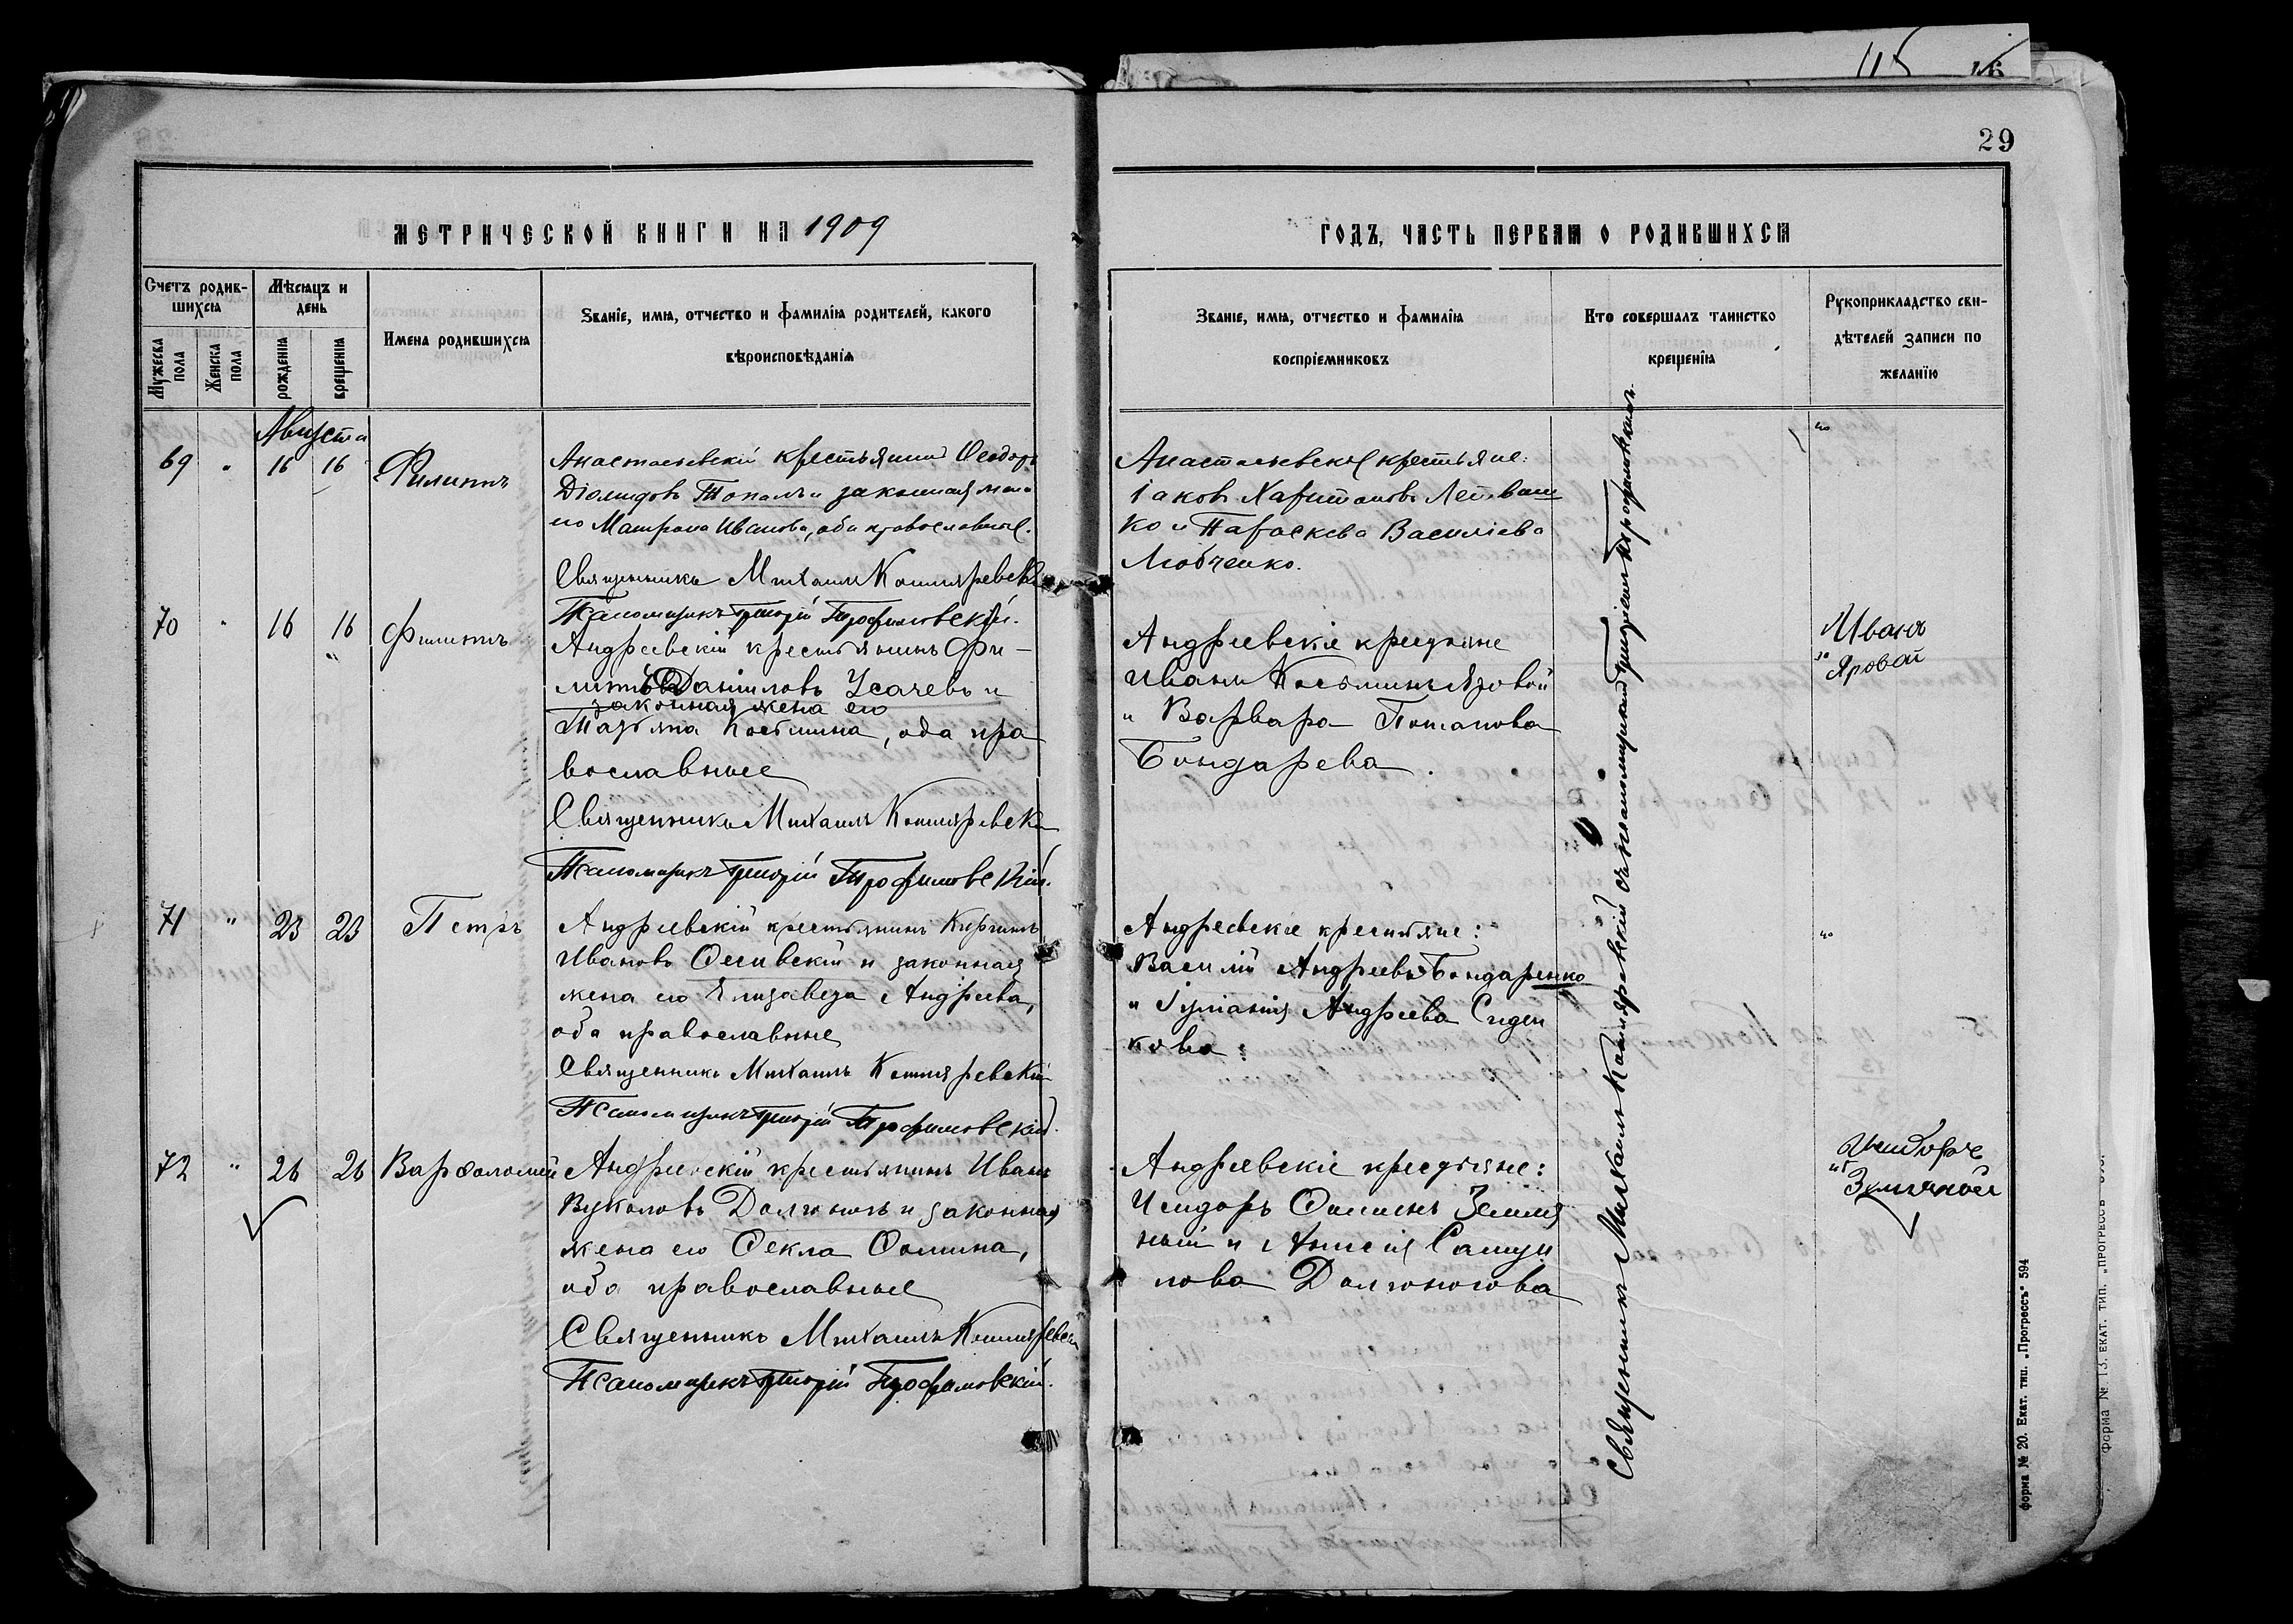 115 16
29
МЕТРИЧЕСКОЙ КНИГИ НА 1909
ГОДЪ, ЧАСТЬ ПЕРВАЯ О РОДИВШИХСЯ
Счетъ родив-
шихся
Мѣсяцъ и
день
Мужеска
пола
Женска
пола
рожденія
крещенія
Имена родившихся
Званіе, имя, отчество и фамилія родителей, какого
вѣроисповѣданія
Званіе, имя, отчество и фамилія
воспріемниковъ
Кто совершалъ таинство
крещенія
Рукоприкладство сви-
дѣтелей записи по
желанію
Августа
69 " 16 16 Филиппъ
Анастасьевскій крестьянинъ Ѳеодоръ
Діомидовъ Топалъ и законная жена
его Матрона Иванова, оба православные.
Священникъ Михаилъ Котляревскій
Псаломщикъ Григорій Трофимовскій.
Анастасьевскіе крестьяне:
Іаковъ Харитоновъ
ко и Параскева Василіева
Любченко.
70 " 16 16 Филиппъ
Андреевскій крестьянинъ Фи-
липпъ Даніиловъ Усачевъ и
законная жена его
Татьяна Косьмина, оба пра
вославные
Священникъ Михаилъ Котляревскій
Псаломщикъ Григорій Трофимовскій.
Андреевскіе крестьяне
Иванъ Косьминъ Яровой
и Варвара Потапова
Бондарева.
Иванъ
Яровой
71 " 23 23 Петръ
Андреевскій крестьянинъ Кириллъ
Ивановъ Осиевскій и законная
жена его Елизавета Андреева,
оба православные
Священникъ Михаилъ Котляревскій
Псаломщикъ Григорій Трофимовскій.
Андреевскіе крестьяне:
Василій Андреевъ Бондаренко
и Іуліанія Андреева Сиден
кова.
72 " 26 26 Варѳоломей
Андреевскій крестьянинъ Иванъ
Вуколовъ Долгоногъ и законная
жена его Ѳекла Ѳомина,
оба православные
Священникъ Михаилъ Котляревскій
Псаломщикъ Григорій Трофимовскій.
Андреевскіе крестьяне:
Исидоръ Ѳоминъ Земля
ный и Анисія Самуи
лова Долгоногова
Землякой
Священникъ Михаилъ Котляревскій съ псаломщикомъ Григоріемъ Трофимовскимъ.
Форма № 20. Екат. тип. „Прогрессъ" 594
Форма № 13. ЕКАТ. ТИП. „ПРОГРЕССЪ"